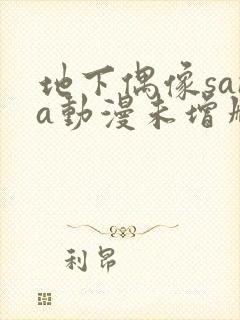 地下偶像sa
a動漫未增
利昂